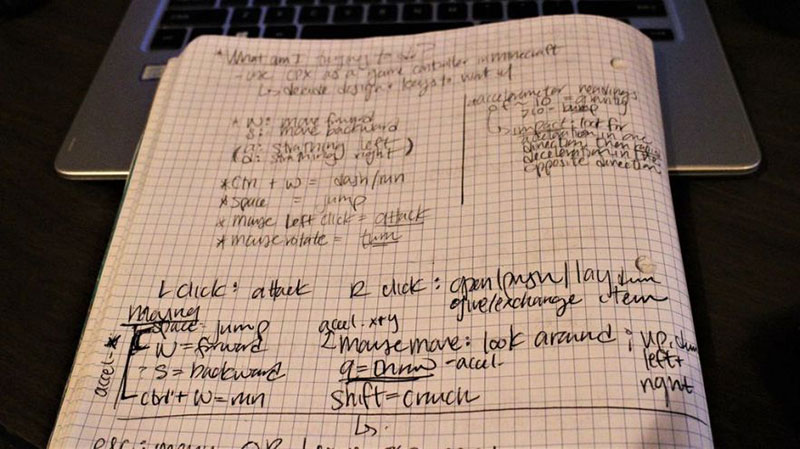 * What am I trying to do?
- use CPX as a game controller in minecraft
↳ decide design + keys to work w/
* W: move forward
S: move backward
(a: strafing left
(d: strafing right)
* Ctrl + W = dash/run
* Space = jump
* mouse left click = attack
* mouse rotate = turn
* accelerometer readings
of ~ 10 = gravity
>10 = bump
↳ impact: look for
acceleration in one
direction, then
deceleration in
opposite direction
L click: attack
R click: open/push/lay down
give/exchange item
moving
Space: jump
W = forward
S = backward
ctrl + W = run
accel
accel. x+y
mouse move: look around ; up, down
left +
right
q = throw - accel
Shift = crouch
↳
esc: menu OR